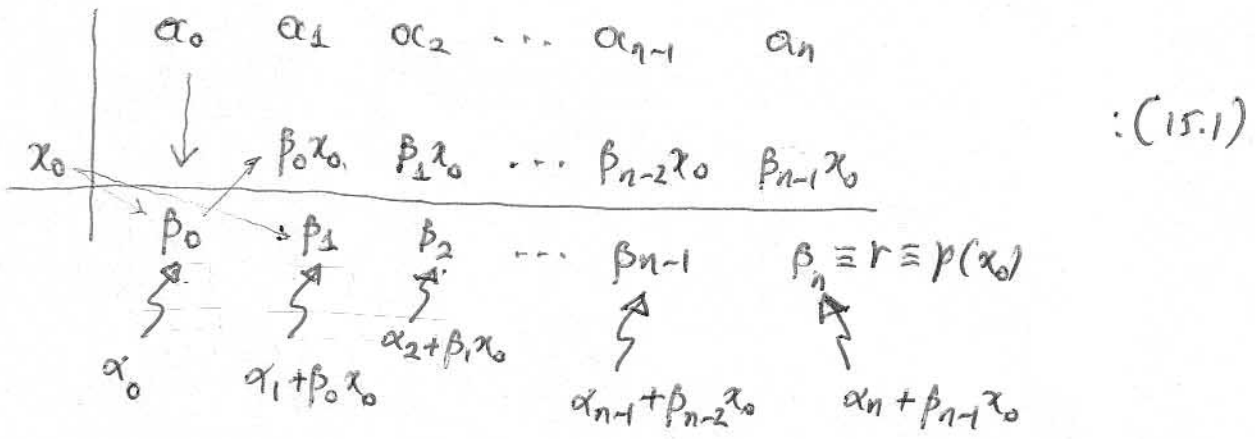 α₀ α₁ α₂ ... αₙ₋₁ αₙ
:(15.1)
x₀ β₀x₀ β₁x₀ ... βₙ₋₂x₀ βₙ₋₁x₀
β₀ β₁ β₂ ... βₙ₋₁ βₙ ≡ r ≡ p(x₀)
α₀ α₁+β₀x₀ α₂+β₁x₀ αₙ₋₁+βₙ₋₂x₀ αₙ+βₙ₋₁x₀